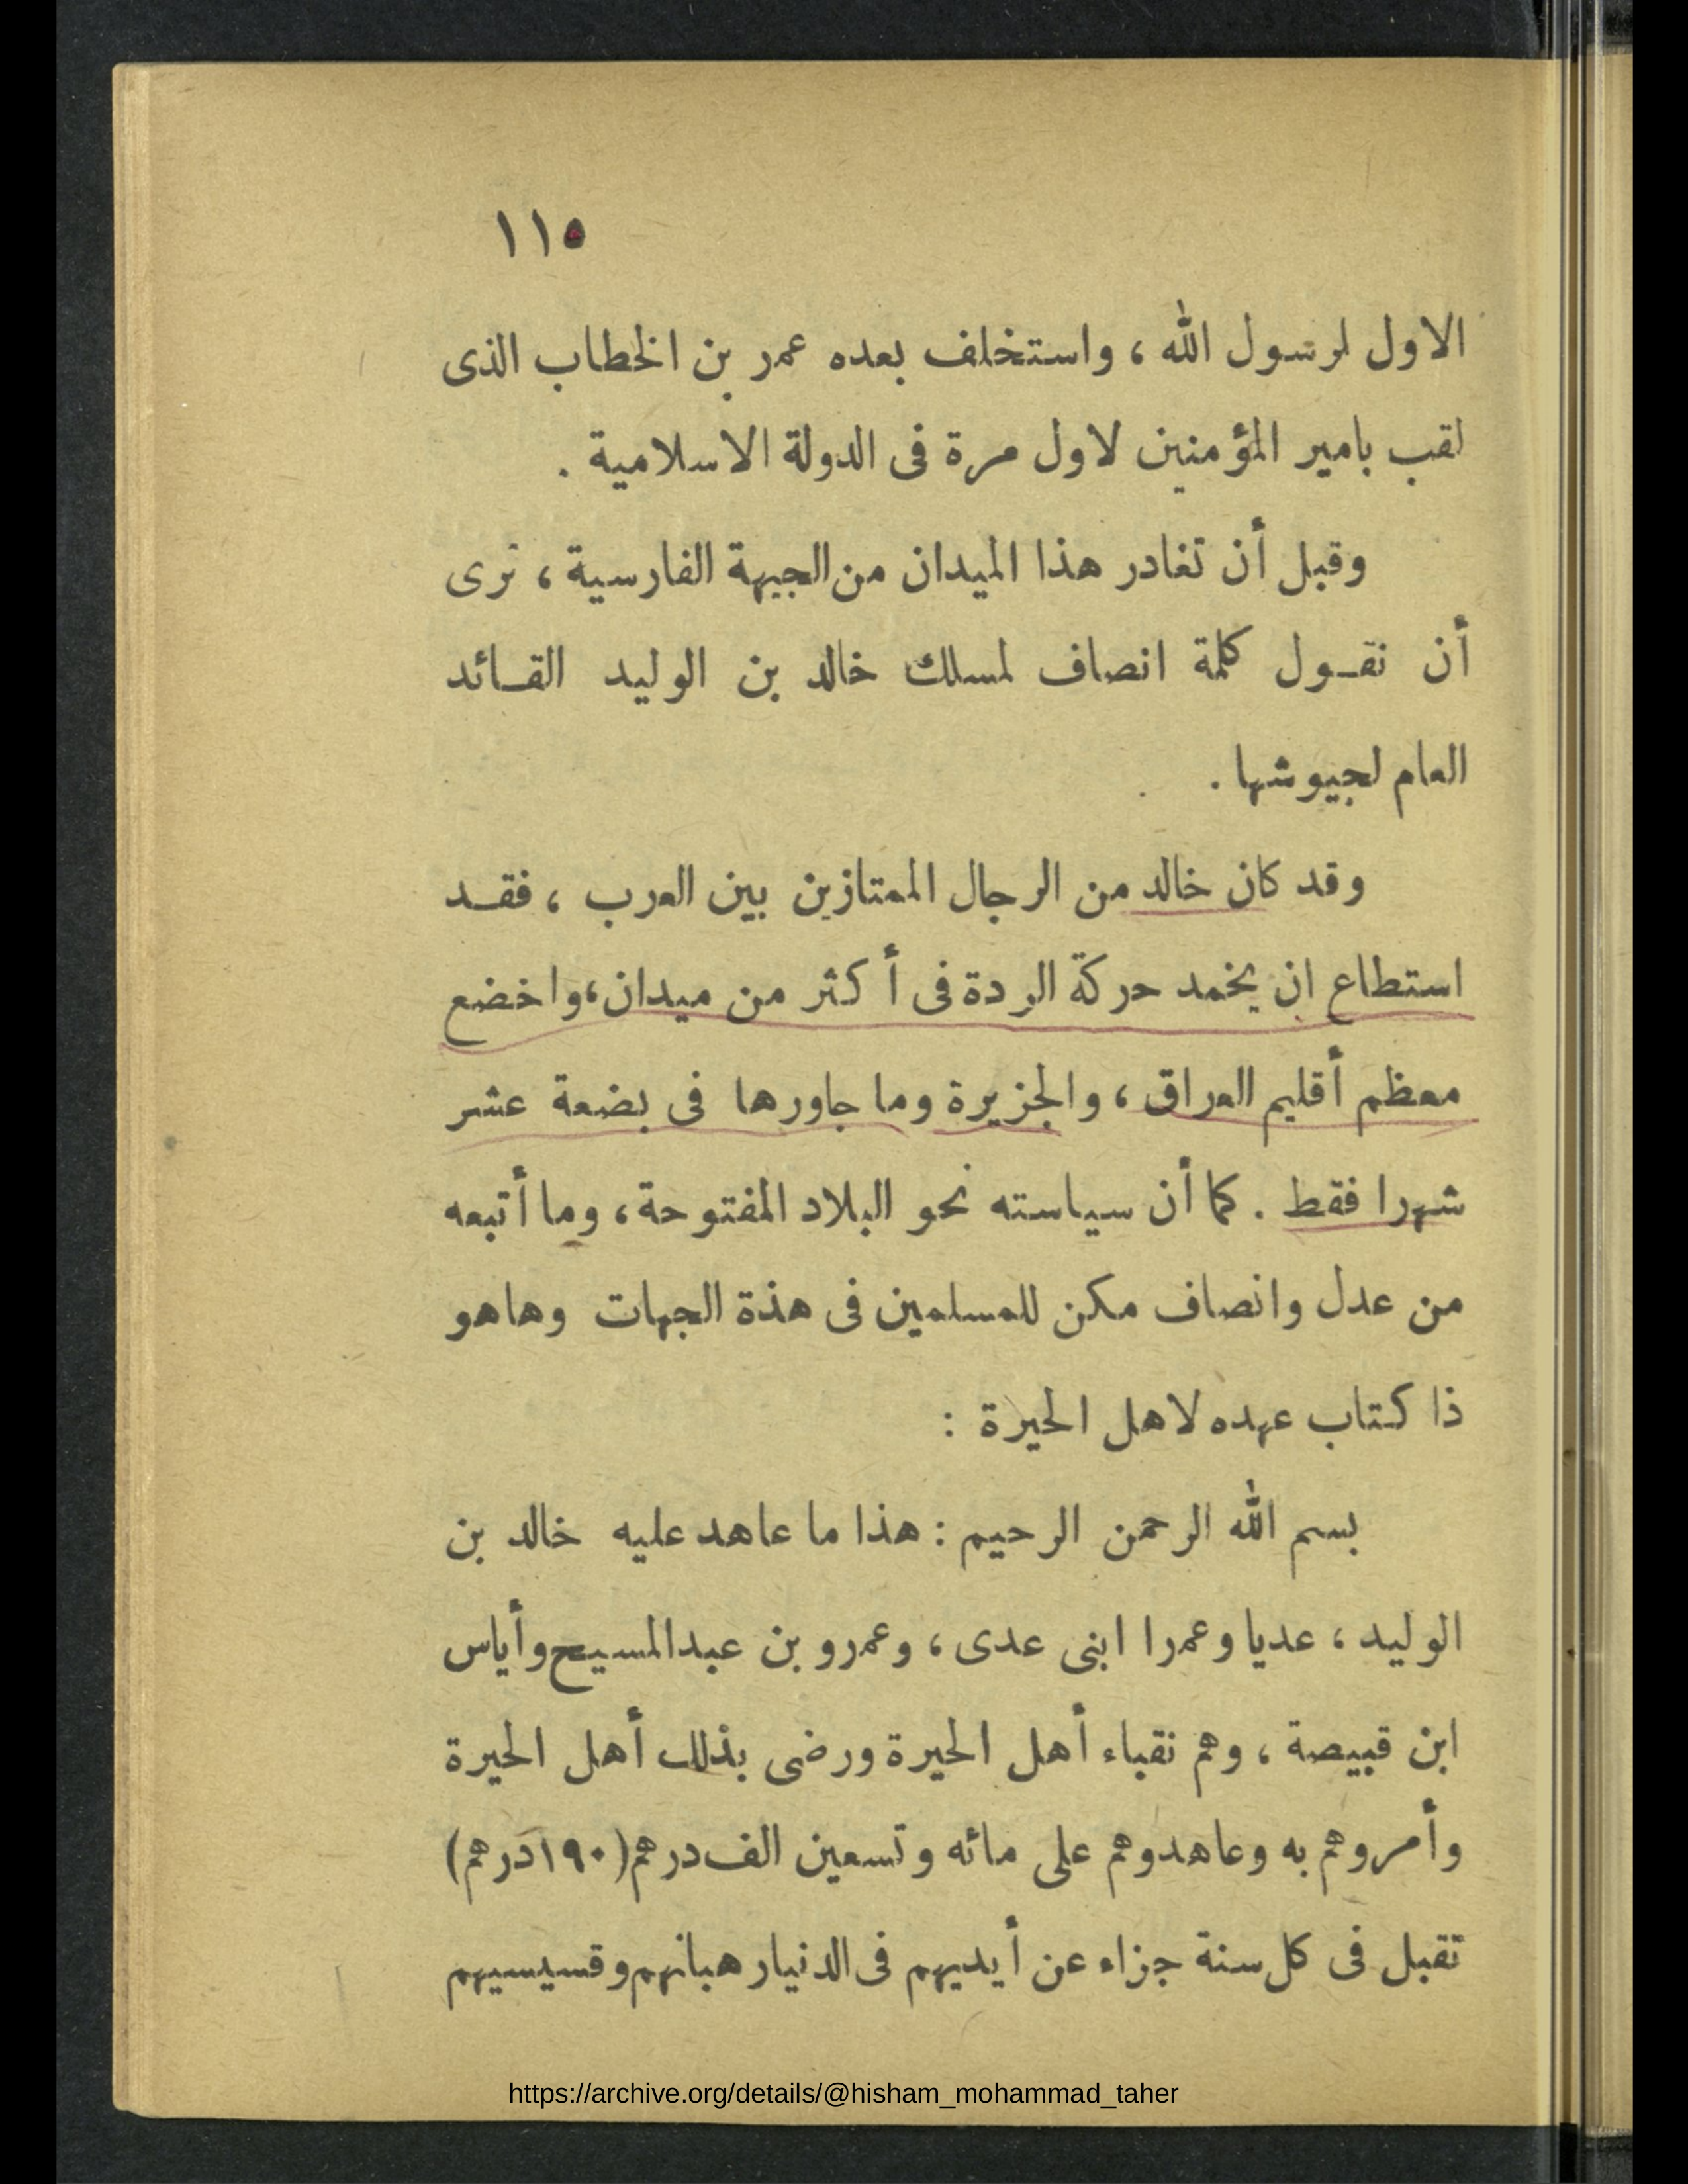 ١١٥
الاول لرسول الله ، واستخلف بعده عمر بن الخطاب الذى
لقب بامير المؤمنين لاول مرة فى الدولة الاسلامية .
وقبل أن تغادر هذا الميدان من الجبهة الفارسية ، نرى
أن نقـول كلمة انصاف لمسلك خالد بن الوليد القـائد
العام لجيوشها .
وقد كان خالد من الرجال الممتازين بين العرب ، فقـد
استطاع ان يخمد حركة الردة فى أكثر من ميدان ، واخضع
معظم أقليم العراق ، والجزيرة وما جاورها فى بضعة عشر
شهرا فقط . كما أن سياسته نحو البلاد المفتوحة ، وما أتبعه
من عدل وانصاف مكن للمسلمين فى هذة الجهات وهاهو
ذا كتاب عهده لاهل الحيرة :
بسم الله الرحمن الرحيم : هذا ما عاهد عليه خالد بن
الوليد ، عديا وعمرا ابنى عدى ، وعمرو بن عبدالمسيح وأياس
ابن قبيصة ، وهم نقباء أهل الحيرة ورضى بذلك أهل الحيرة
وأمروهم به وعاهدوهم على مائه وتسعين الف درهم (١٩٠درهم)
تقبل فى كل سنة جزاء عن أيديهم فى الدنيا رهبانهم وقسيسيهم
https://archive.org/details/@hisham_mohammad_taher